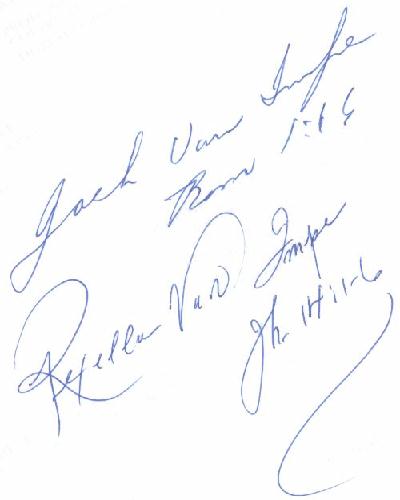 Jack Van Impe
Rom 1:16
Rexella Van Impe
Jh. 14:1-6